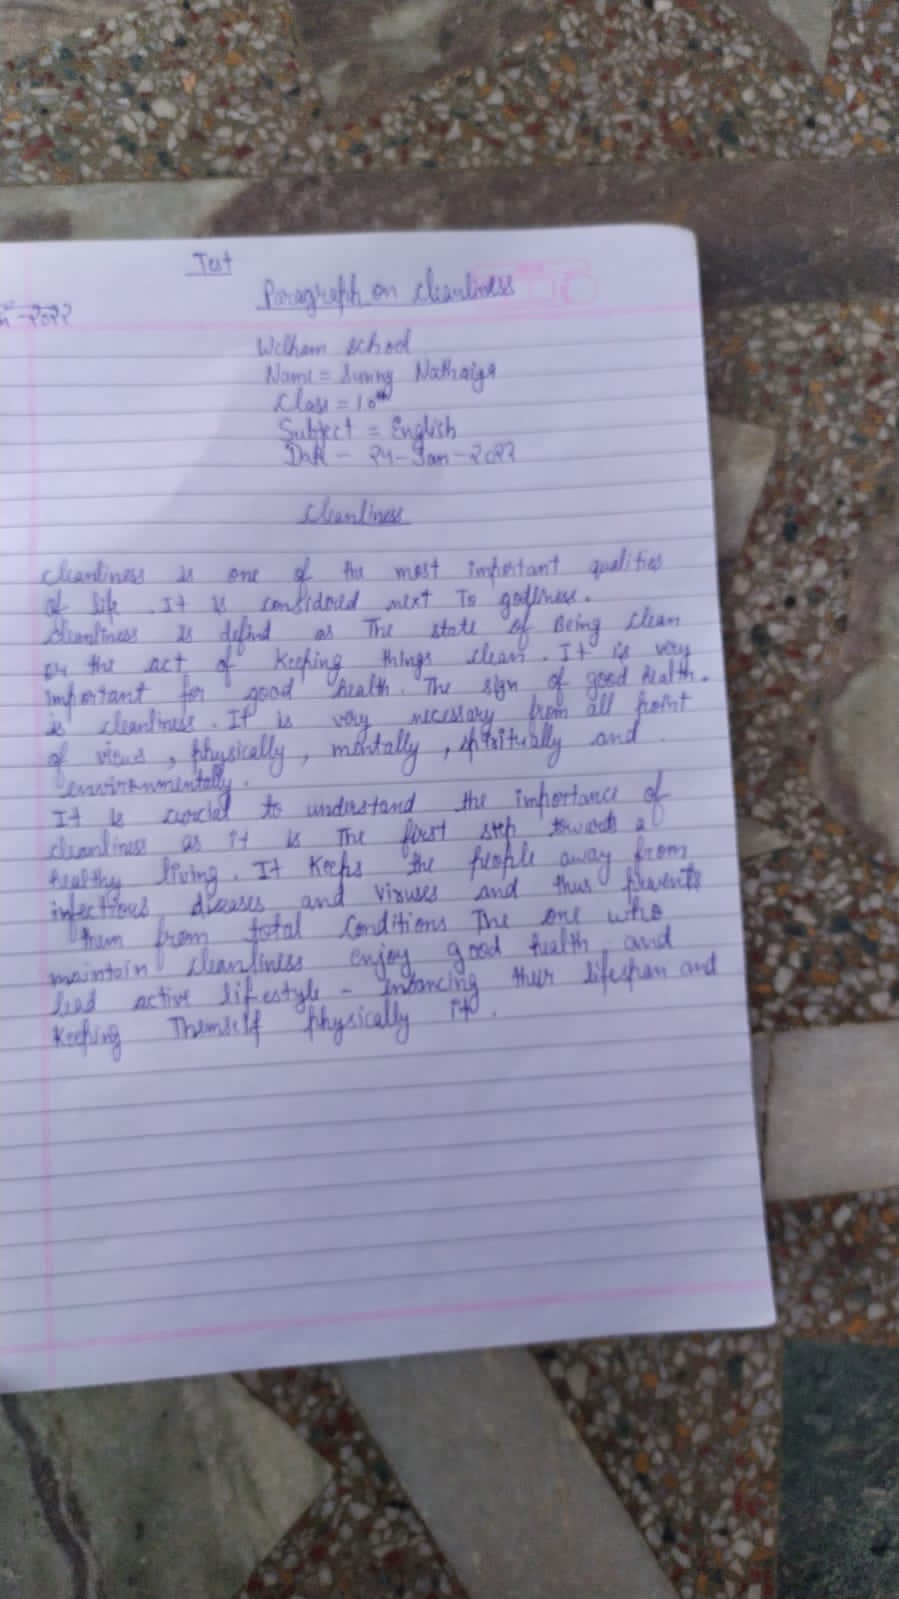 Test
Paragraph on cleanliness
-2022
Welham school
Name = Sunny Nathaiya
Class = 10th
Subject = English
Date - 24-Jan-2022
Cleanliness
Cleanliness is one of the most important qualities
of life. It is considored next To godliness.
Cleanliness is defind as The state of Being clean
or the act of Keeping things clean. It is very
important for good health. The sign of good health.
is cleanliness. It is very necessary from all point
of views, physically, mentally, spiritually and
environmentally.
It is crucial to understand the importance of
cleanliness as it is The first step towards a
healthy living. It Keeps the people away from
infectious diseases and viruses and thus prevents
them from fotal Conditions The one who
maintain cleanliness enjoy good health and
lead active lifestyle - Inhancing their lifespan and
Keeping Themself physically it.